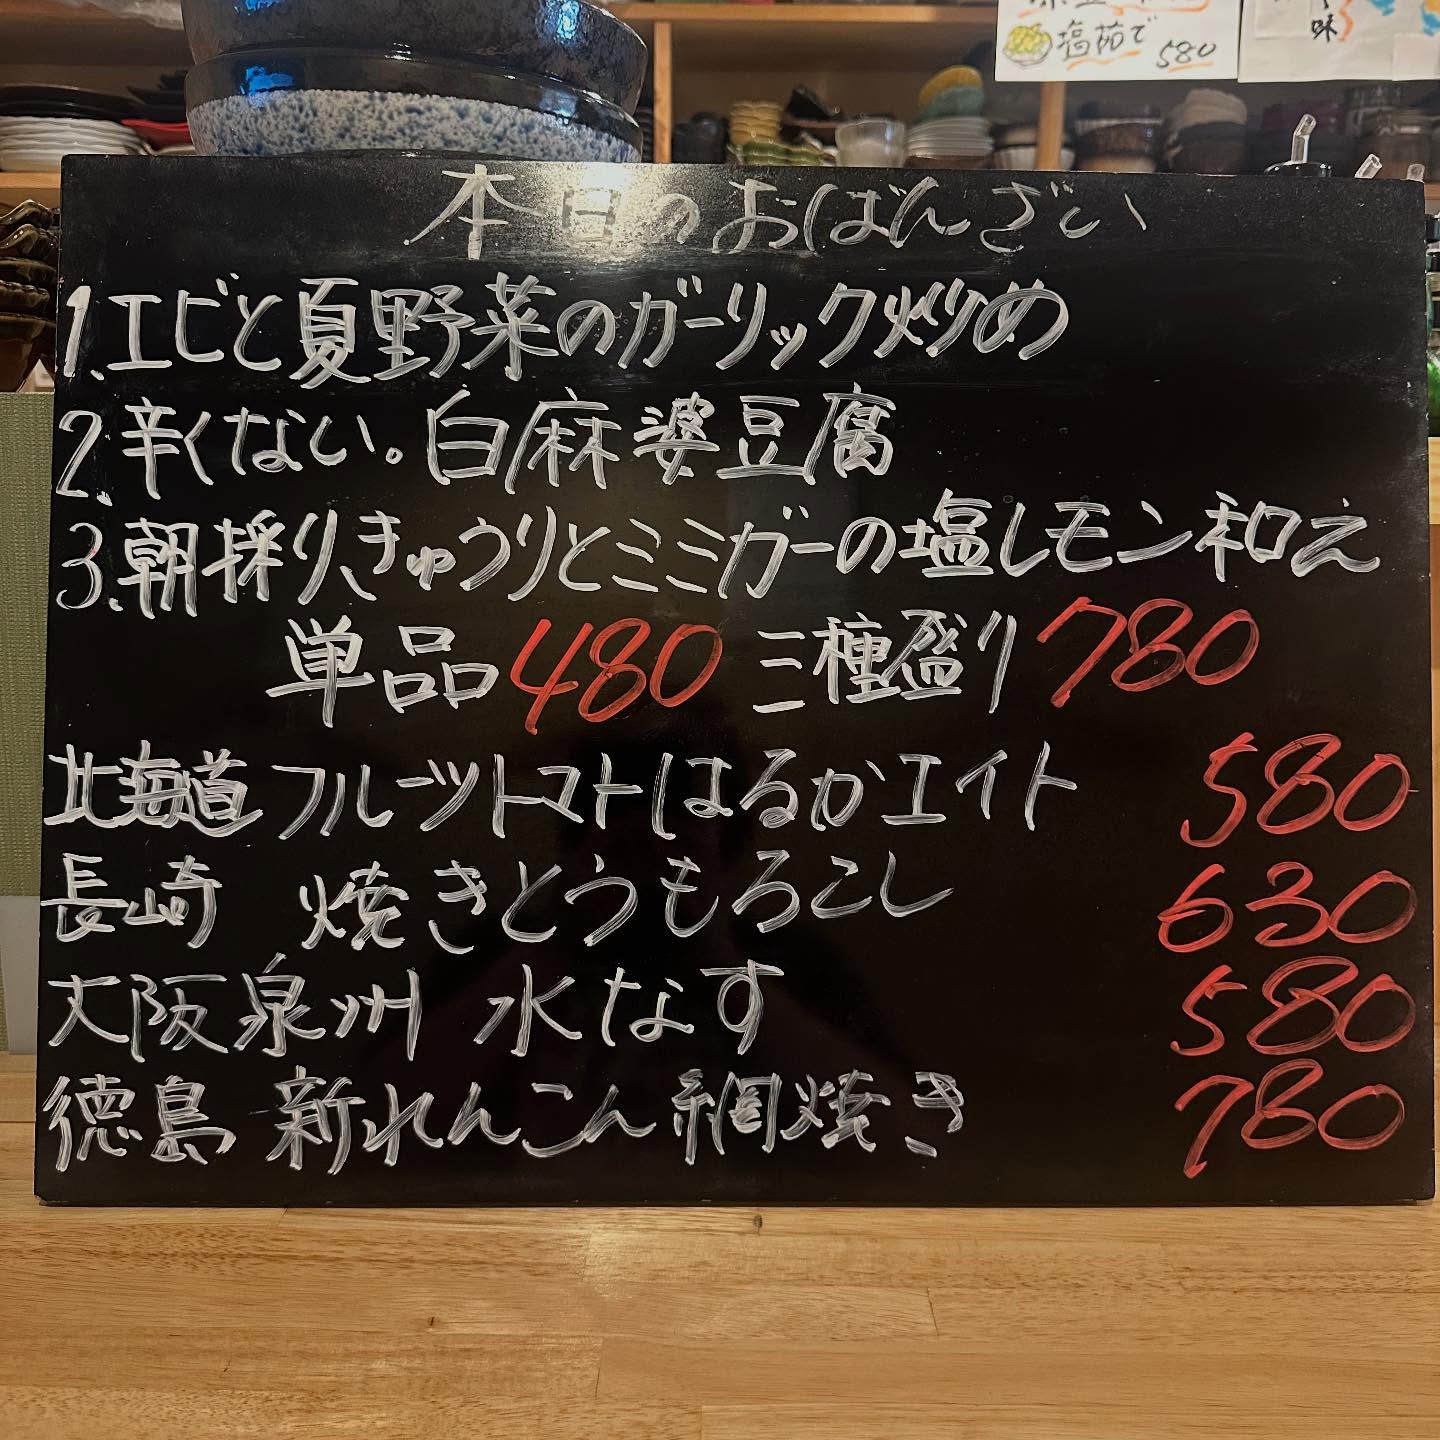 塩茹で 580
味
本日のおばんざい
1.エビと夏野菜のガーリック炒め
2.辛くない。白麻婆豆腐
3.朝採りきゅうりとミミガーの塩レモン和え
単品480 三種盛り780
北海道 フルーツトマトはるかエイト 580
長崎 焼きとうもろこし 630
大阪泉州 水なす 580
徳島 新れんこん網焼き 780